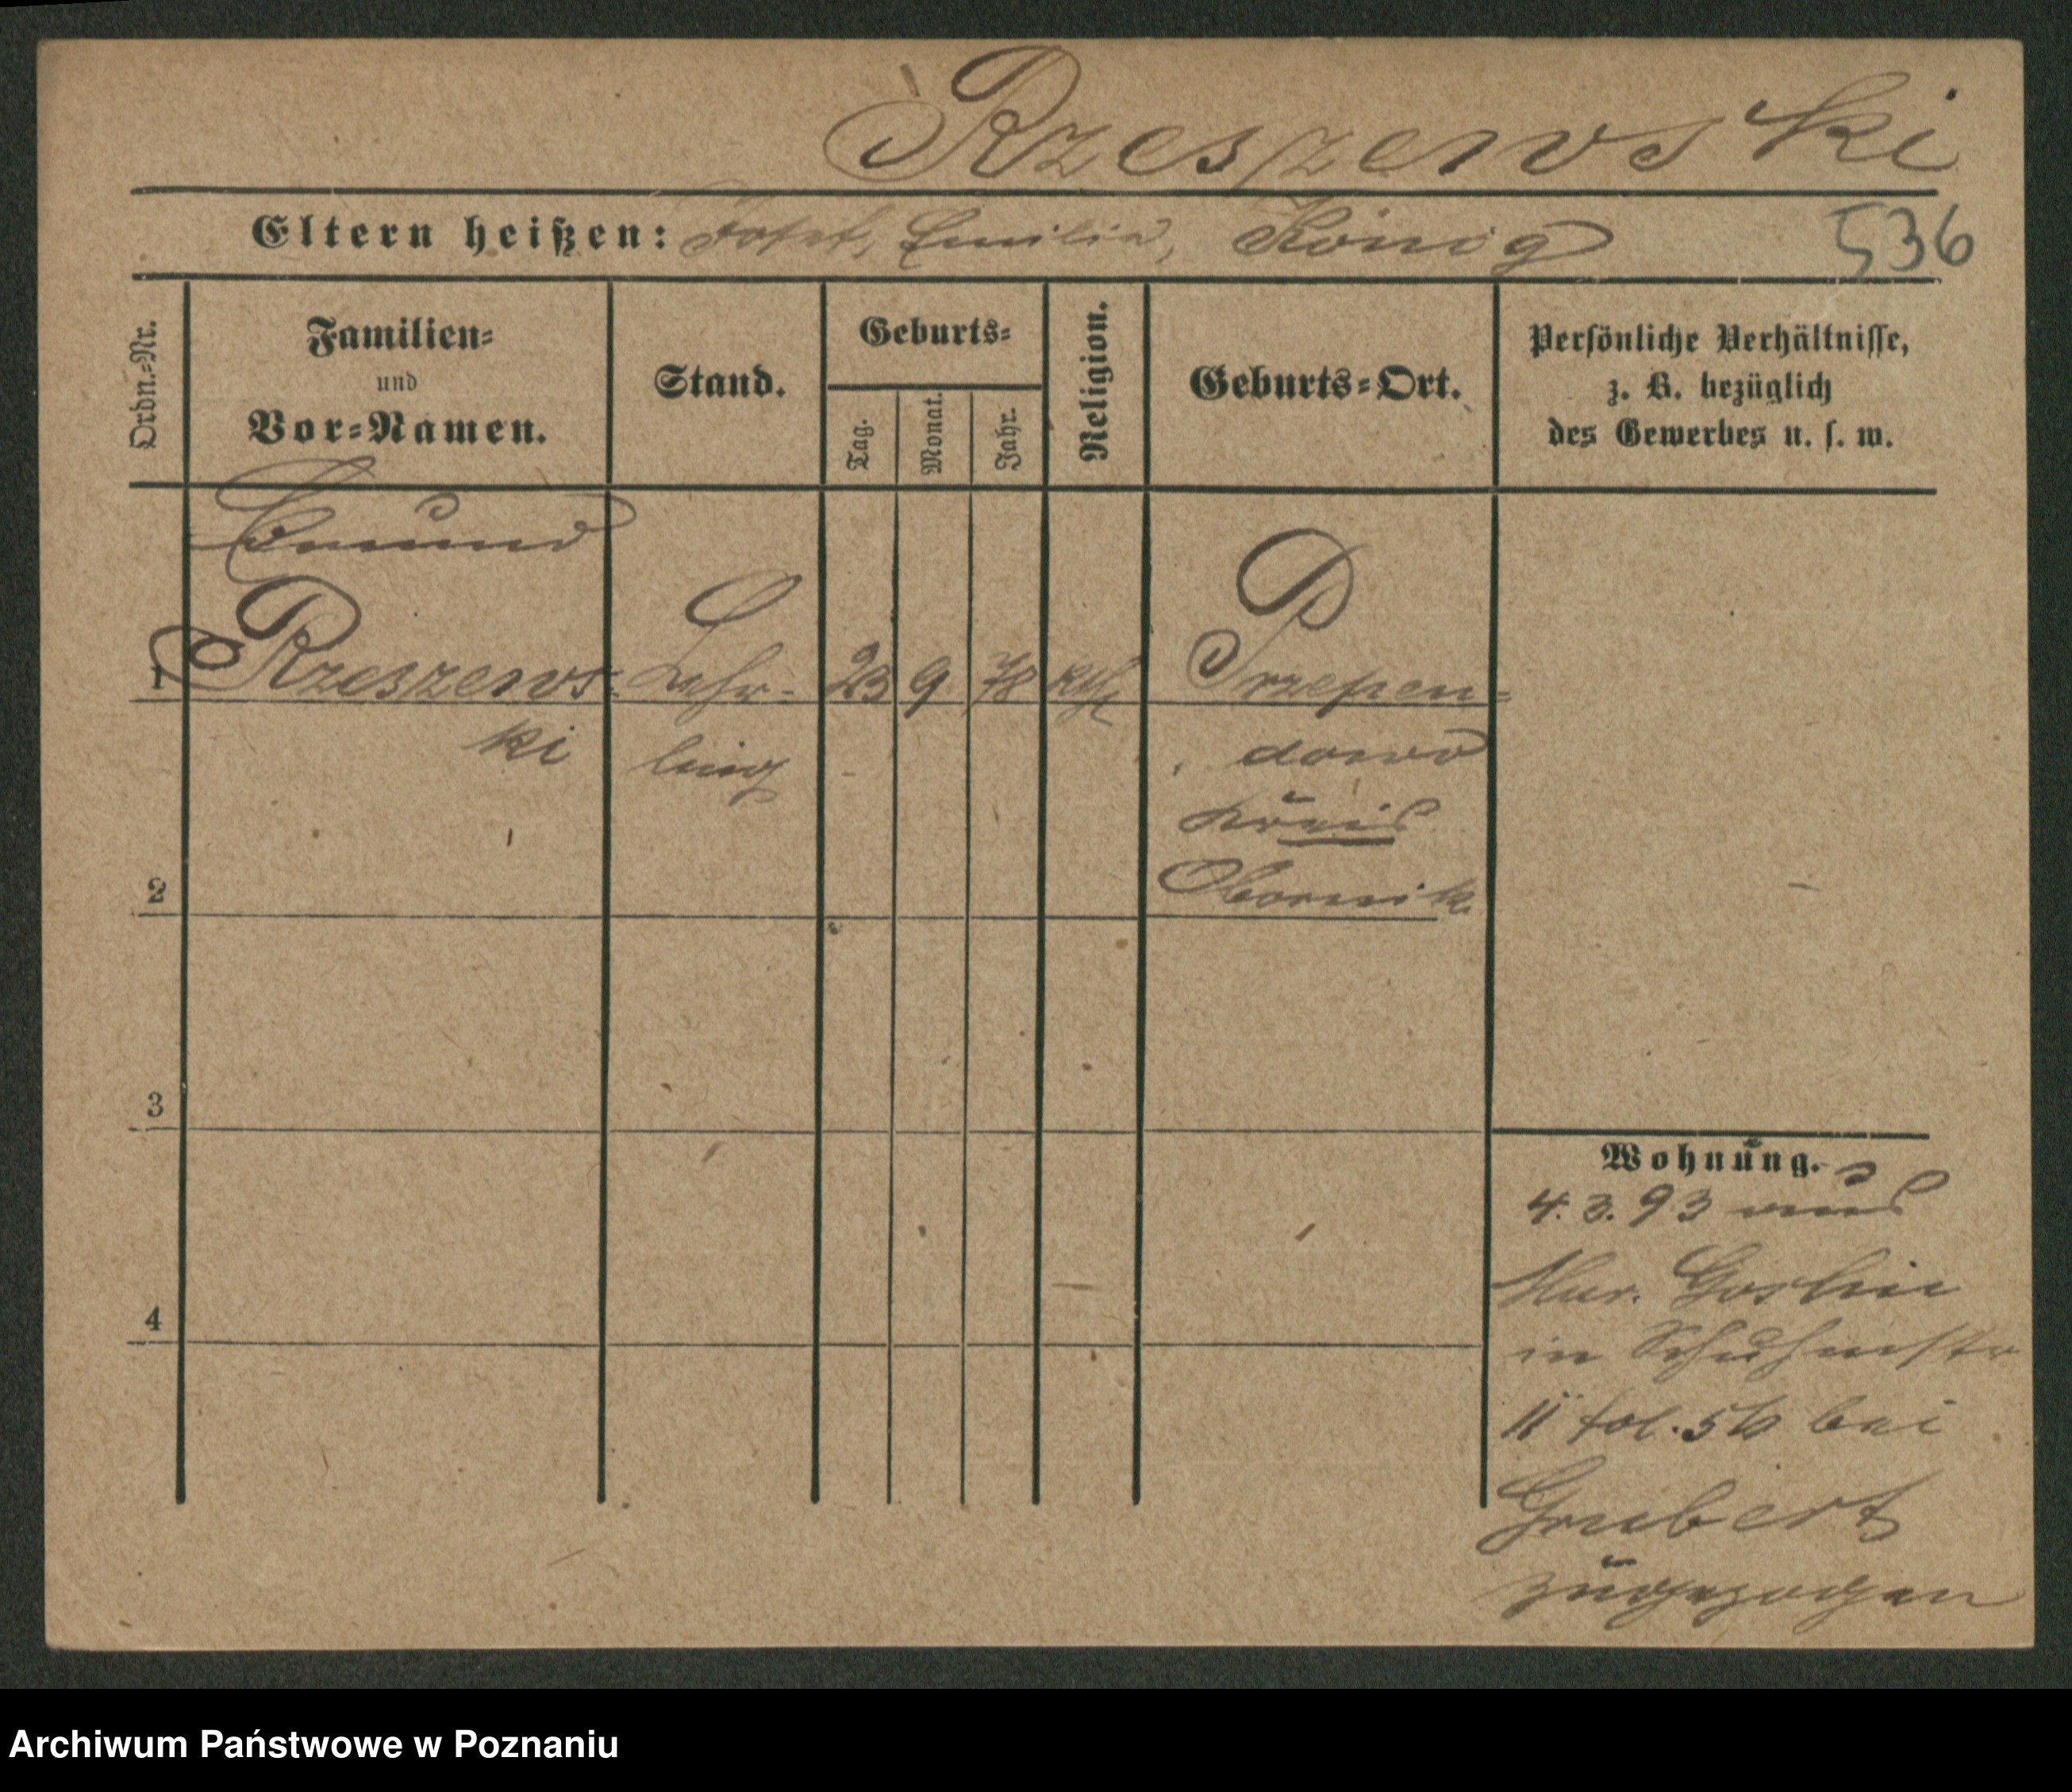 Rzeszewski
Eltern heißen: Josef, Emilia, König
536
Ordn.-Nr.
Familien-
und
Vor-Namen.
Stand.
Geburts-
Tag.
Monat.
Jahr.
Religion.
Geburts-Ort.
Persönliche Verhältnisse,
z. B. bezüglich
des Gewerbes u. s. w.
Edmund
1 Rzeszews- Lehr- 23 9 78 kth Przepen-
ki ling dowo
Kreis
Obornik
2
3
4
Wohnung.
4. 3. 93 aus
Mur. Goslin
in Schuhmstr
11 fol. 56 bei
Grubert
zugezogen
Archiwum Państwowe w Poznaniu